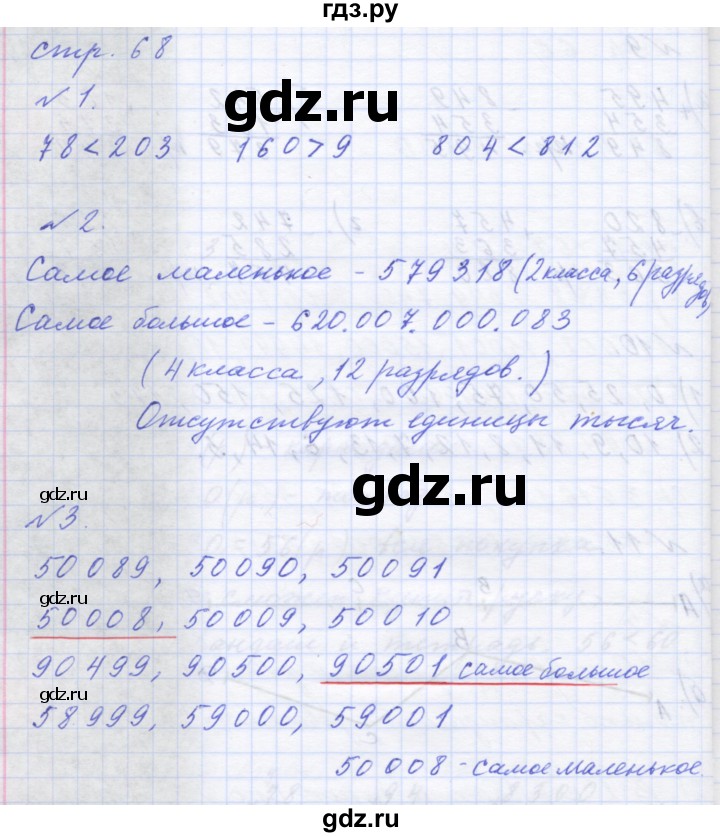 гдз.ру
стр. 68
gdz.ru
№ 1.
78 < 203 160 > 9 804 < 812
№ 2.
Самое маленькое - 579318 (2 класса, 6 разрядов)
Самое большое - 620.007.000.083
(4 класса, 12 разрядов.)
Отсутствуют единицы тысяч.
gdz.ru
gdz.ru
№ 3.
50089, 50090, 50091
gdz.ru
50008, 50009, 50010
90499, 90500, 90501 самое большое
gdz.ru
58999, 59000, 59001
50008 - самое маленькое.
gdz.ru